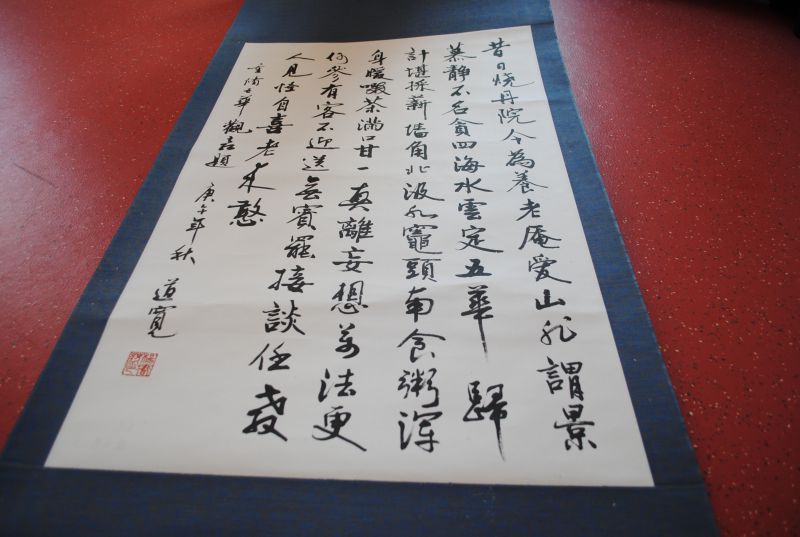 昔日烧丹院今為養老庵愛山非謂景
慕静不名貪四海水雲定五華歸
計堪採薪墻角北汲水竈頭南食粥渾
身暖啜茶滿口甘一真離妄想萬法更
何參有客不迎送無賓罷接談任教
人見怪自喜老來憨
太華觀題 庚午年秋 道寬